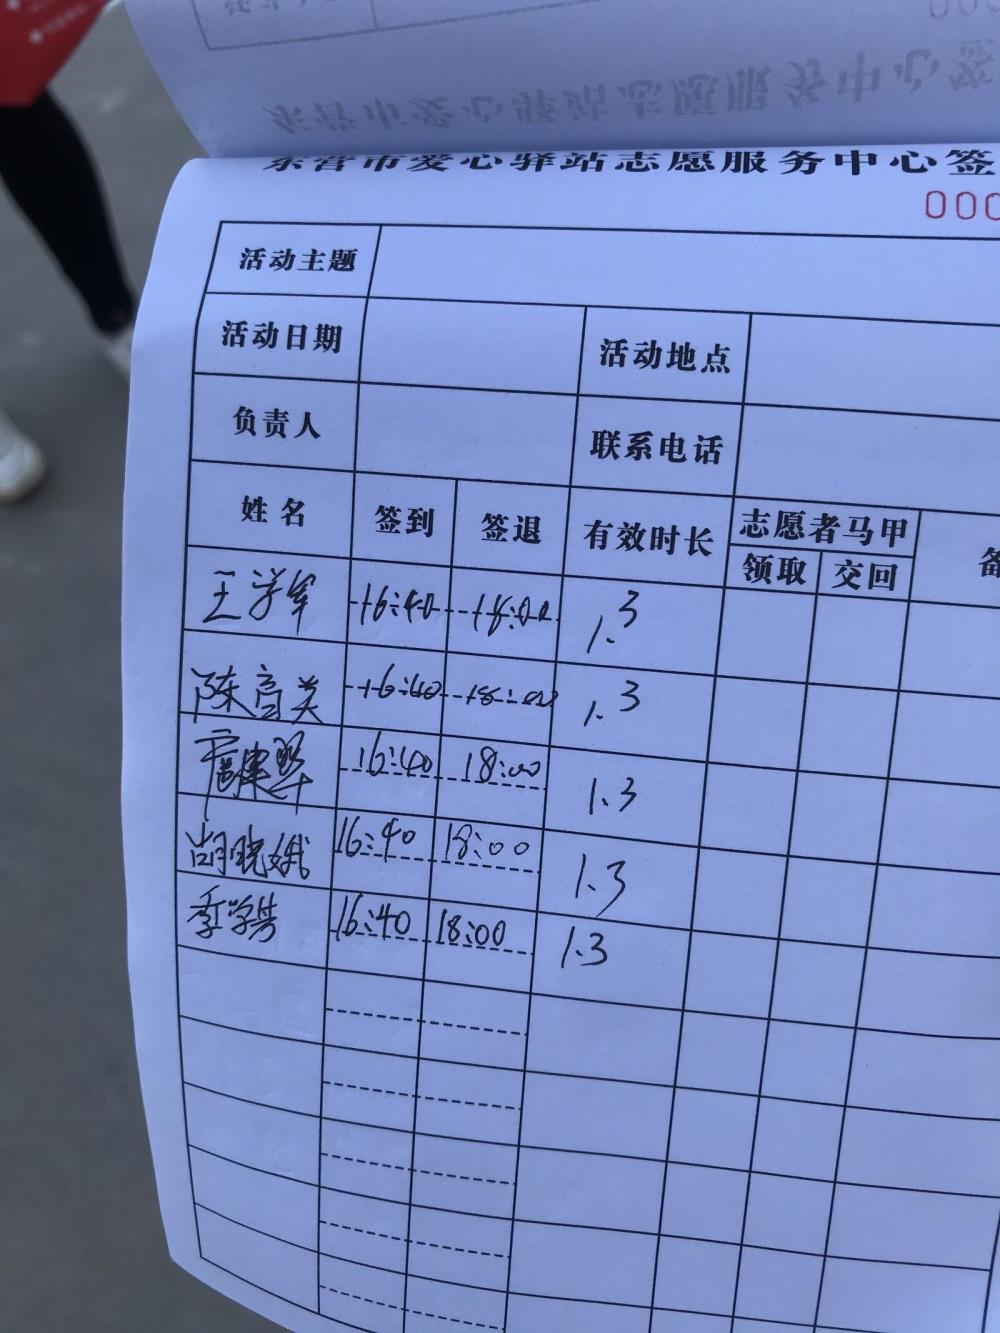 东营市爱心驿站志愿服务中心签
000
活动主题
活动日期 活动地点
负责人 联系电话
姓名 签到 签退 有效时长 志愿者马甲 备
领取 交回
王学军 16:40 18:00 1.3
陈高关 16:40 18:00 1.3
16:40 18:00 1.3
胡晓娥 16:40 18:00 1.3
季学芳 16:40 18:00 1.3